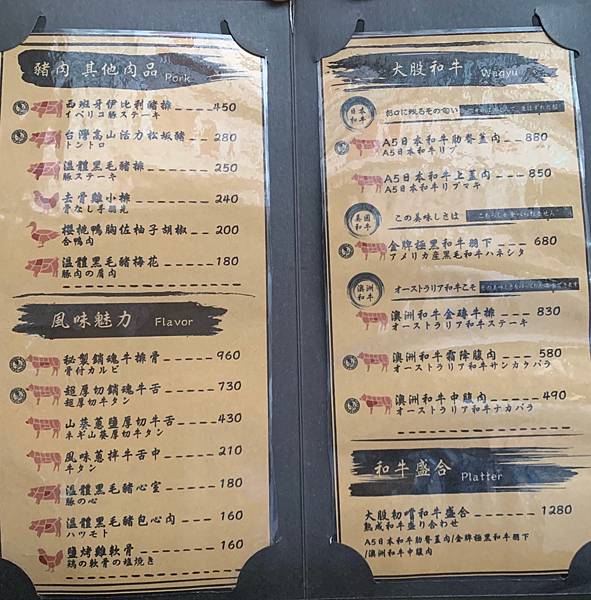 豬肉 其他肉品 Pork
西班牙伊比利豬排 450
イベリコ豚ステーキ
台灣高山活力松坂豬 280
トントロ
溫體黑毛豬排 250
豚ステーキ
去骨雞小排 240
骨なし手羽先
櫻桃鴨胸佐柚子胡椒 200
合鴨肉
溫體黑毛豬梅花 180
豚肉の肩肉
風味魅力 Flavor
秘製銷魂牛排骨 960
骨付カルビ
超厚切銷魂牛舌 730
超厚切牛タン
山葵蔥鹽厚切牛舌 430
ネギ山葵厚切牛タン
風味蔥拌牛舌中 210
牛タン
溫體黑毛豬心室 180
豚の心
溫體黑毛豬包心肉 160
ハツモト
鹽烤雞軟骨 160
鶏の軟骨の塩焼き
大股和牛 Wagyu
日本和牛
お口に残るその匂い
A5日本和牛肋脊蓋肉 880
A5日本和牛リブ
A5日本和牛上蓋肉 850
A5日本和牛リブマキ
美國和牛
この美味しさは
こちらしか食べられません
金牌極黑和牛翼下 680
アメリカ産黒毛和牛ハネシタ
澳洲和牛
オーストラリア和牛こそ
澳洲和牛金磚牛排 830
オーストラリア和牛ステーキ
澳洲和牛霜降腹肉 580
オーストラリア和牛サンカクバラ
澳洲和牛中腹肉 490
オーストラリア和牛ナカバラ
和牛盛合 Platter
大股初嚐和牛盛合 1280
熟成和牛盛り合わせ
A5日本和牛肋脊蓋肉/金牌極黑和牛翼下
/澳洲和牛中腹肉